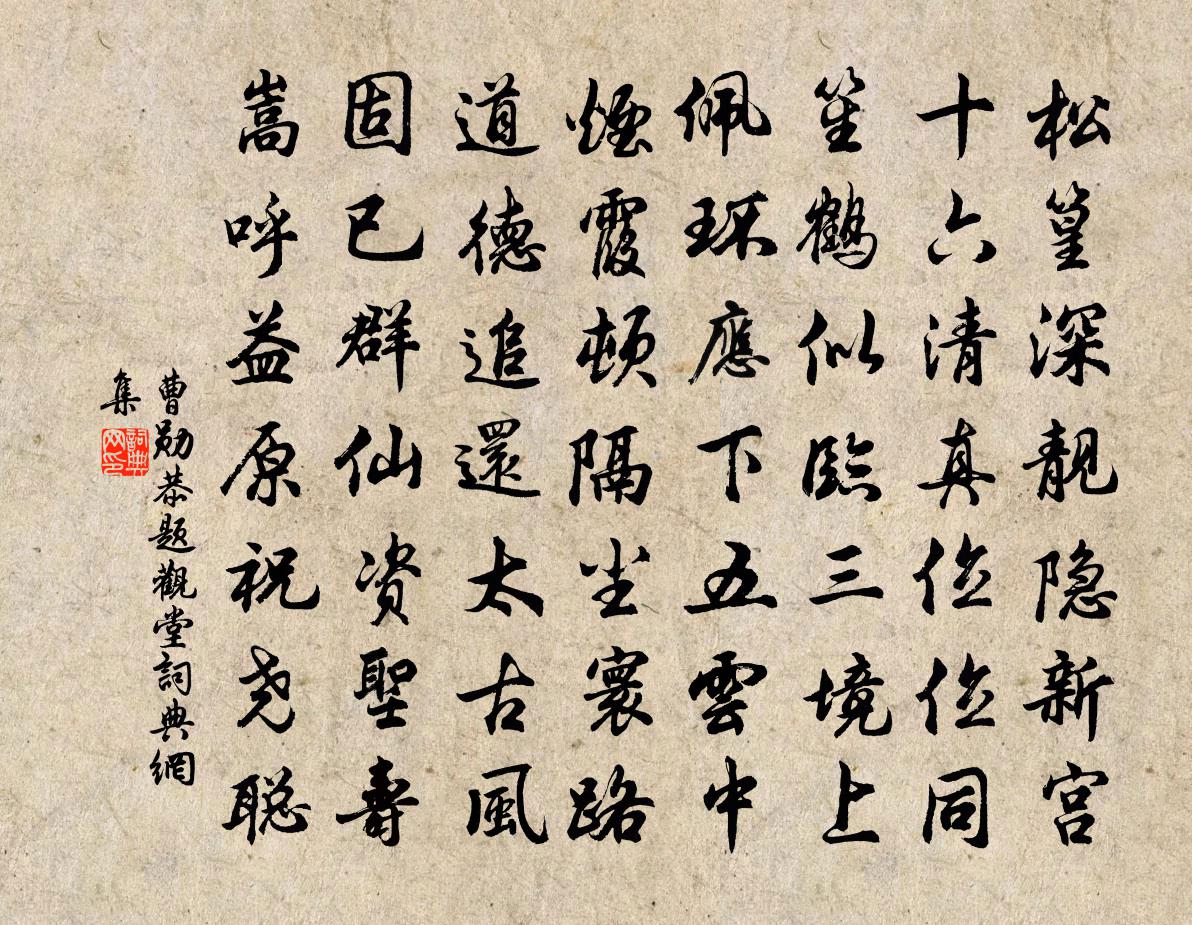 松篁深靓隐新宫
十六清真位位同
笙鹤似临三境上
佩环应下五雲中
烟霞顿隔尘寰路
道德追還太古風
固已群仙资聖壽
嵩呼益原祝尧聪
曹勋恭题觀堂詞典網
集
詞典
网印